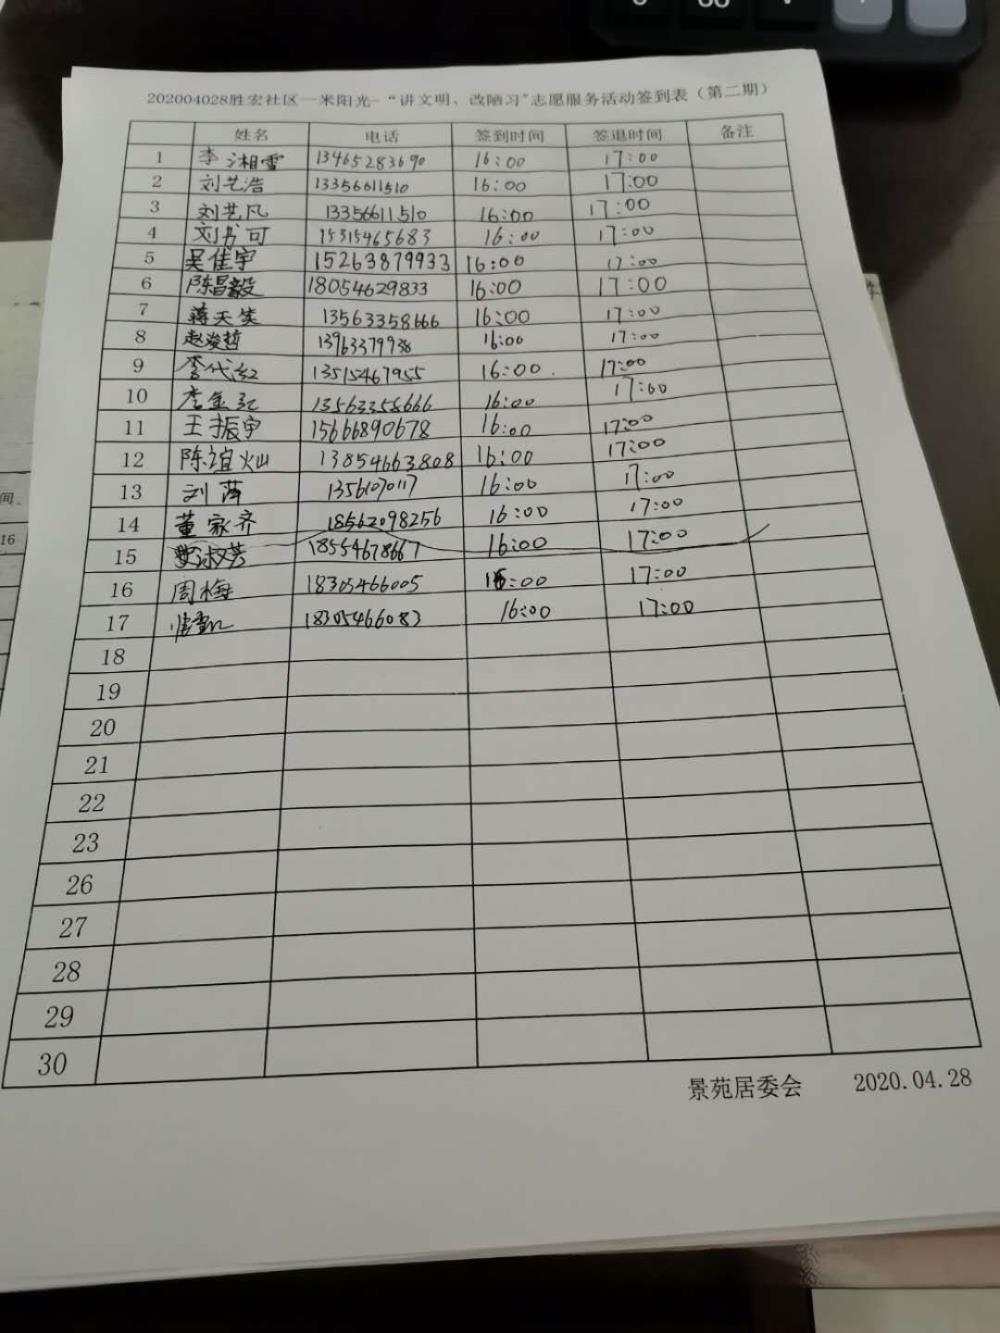 202004028胜宏社区一米阳光-“讲文明、改陋习”志愿服务活动签到表（第二期）
姓名 电话 签到时间 签退时间 备注
1 李湘雪 13465283690 16:00 17:00
2 刘艺浩 13356611510 16:00 17:00
3 刘艺凡 13356611510 16:00 17:00
4 刘书可 15315465683 16:00 17:00
5 吴佳宇 15263879933 16:00 17:00
6 陈昌毅 18054629833 16:00 17:00
7 蒋天笑 13563358666 16:00 17:00
8 赵浚哲 13963379938 16:00 17:00
9 李代红 13515467955 16:00 17:00
10 李金红 13563358666 16:00 17:00
11 王振宇 15666890678 16:00 17:00
12 陈谊灿 13854663808 16:00 17:00
13 刘萍 13561070117 16:00 17:00
14 董家齐 18562098256 16:00 17:00
15 淑芳 18554678667 16:00 17:00
16 周梅 18305466005 16:00 17:00
17 18305466083 16:00 17:00
18
19
20
21
22
23
26
27
28
29
30
景苑居委会 2020.04.28
间
16